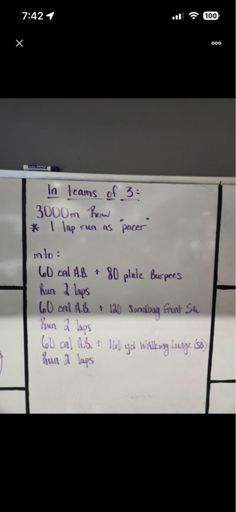 7:42
100
In teams of 3:
3000m Row
* 1 lap run as "pacer"
into:
60 cal A.B. + 80 plate Burpees
Run 2 laps
60 cal A.B. + 120 Sandbag Front Sq
Run 2 laps
60 cal A.B. + 160 yd Walking Lunge (SB)
Run 2 laps